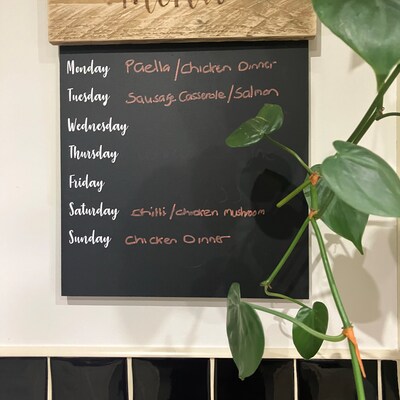 menu
Monday Paella/Chicken Dinner
Tuesday Sausage Casserole/Salmon
Wednesday
Thursday
Friday
Saturday Chilli/chicken mushroom
Sunday Chicken Dinner